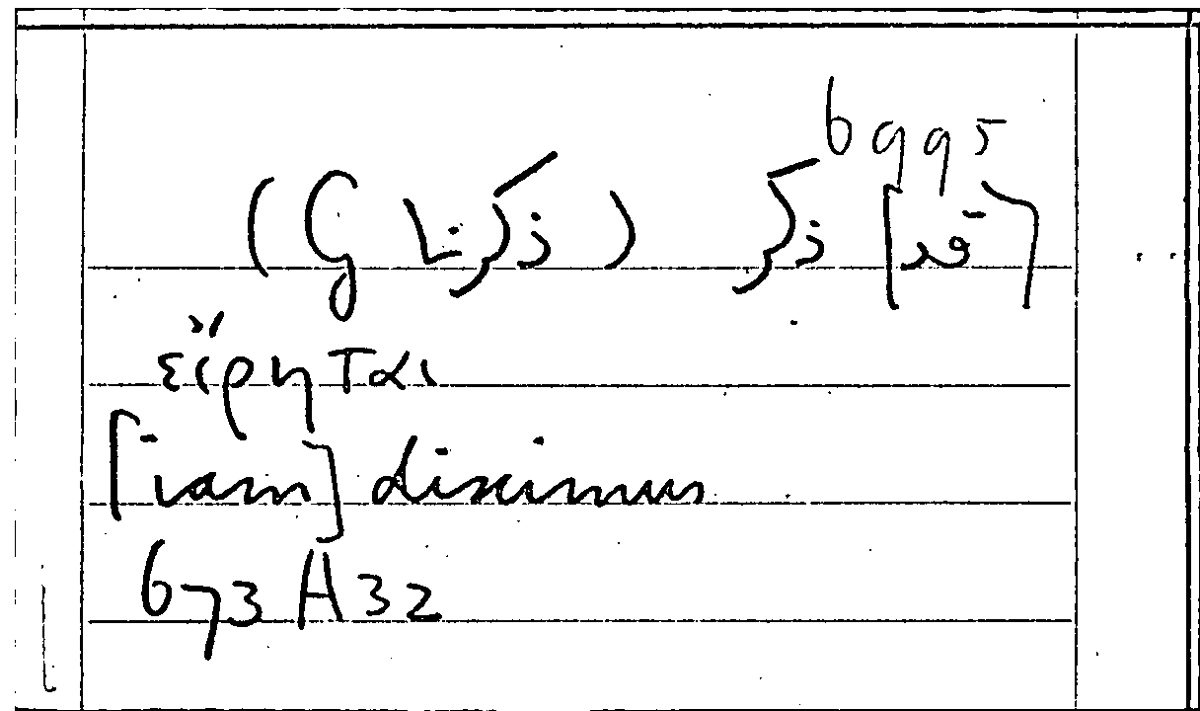 6995
[قد] ذكر (ذكرنا G)
εἴρηται
[iam] diximus
673 A32